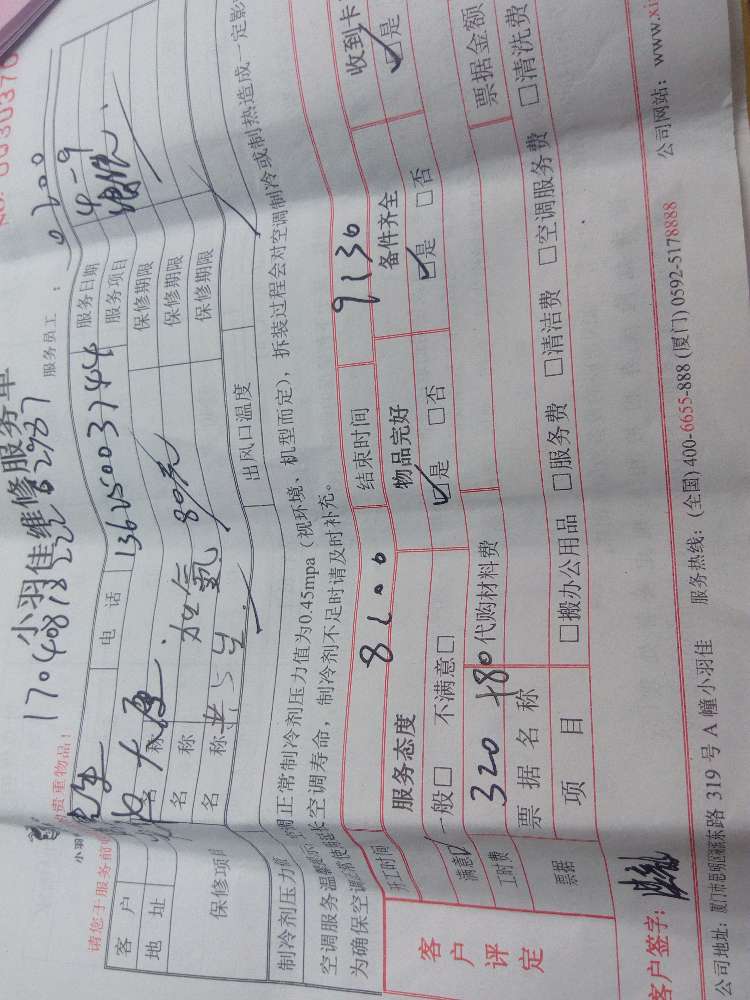 NO. 0030370
小羽佳维修服务单
请您于服务前
的贵重物品!
服务员工:
客户
电话 13625003744
服务日期 4-9
地址
服务项目
保修项
名称
保修期限
名称 加氨 80元
保修期限
名称 共5台
保修期限
制冷剂压力
出风口温度
正常制冷剂压力值为0.45mpa(视环境、机型而定),拆装过程会对空调制冷或制热造成一定影
空调服务温
空调寿命,制冷剂不足时请及时补充。
为确保空
客户评定
开工时间 8:00 结束时间 9:30
满意☑ 一般□ 不满意□
服务态度
物品完好 ☑是 □否
备件齐全 ☑是 □否
收到卡 ☑是
工时费 320+80 代购材料费
票据
票据名称
票据金额
项目 □搬办公用品 □服务费 □清洁费 □空调服务费 □清洗费
客户签字:
公司地址:厦门市思明区莲东路 319 号 A 幢小羽佳 服务热线:(全国)400-6655-888 (厦门)0592-5178888 公司网站:www.xi